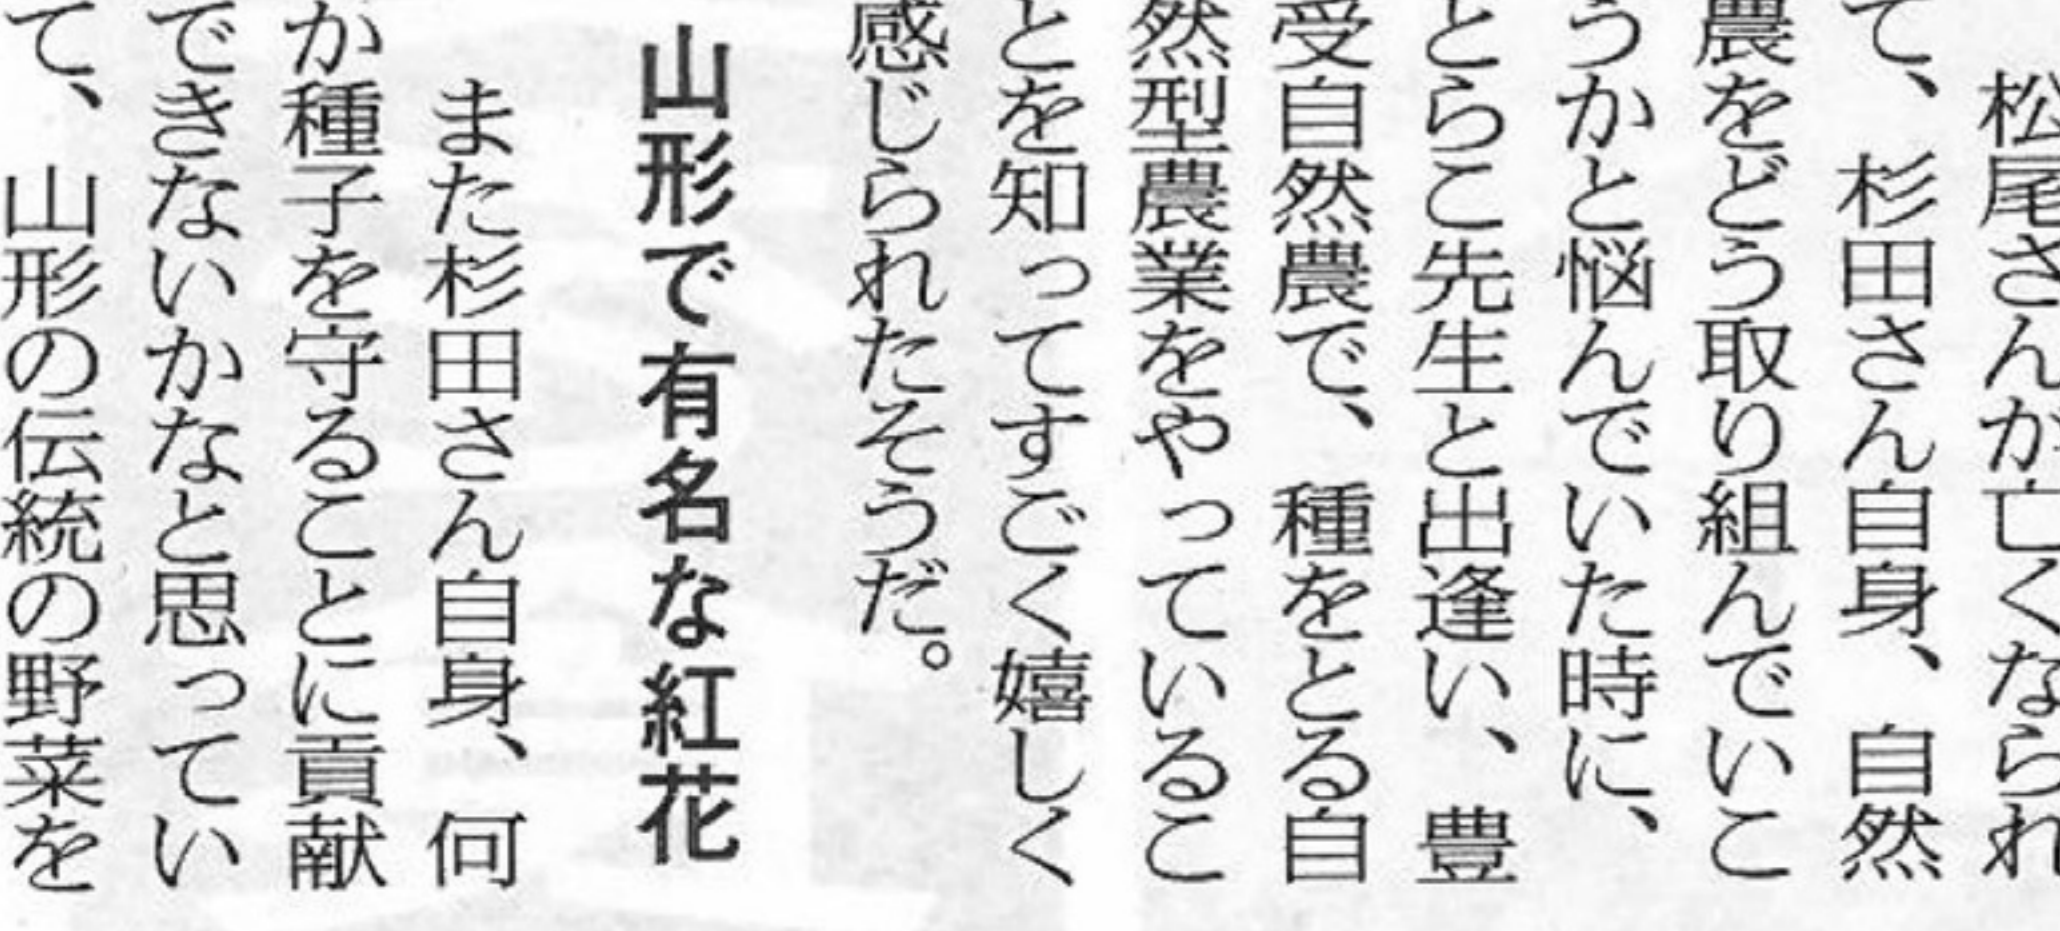 松尾さんが亡くなられ
て、杉田さん自身、自然
農をどう取り組んでいこ
うかと悩んでいた時に、
とらこ先生と出逢い、豊
受自然農で、種をとる自
然型農業をやっているこ
とを知ってすごく嬉しく
感じられたそうだ。
山形で有名な紅花
また杉田さん自身、何
か種子を守ることに貢献
できないかなと思ってい
て、山形の伝統の野菜を